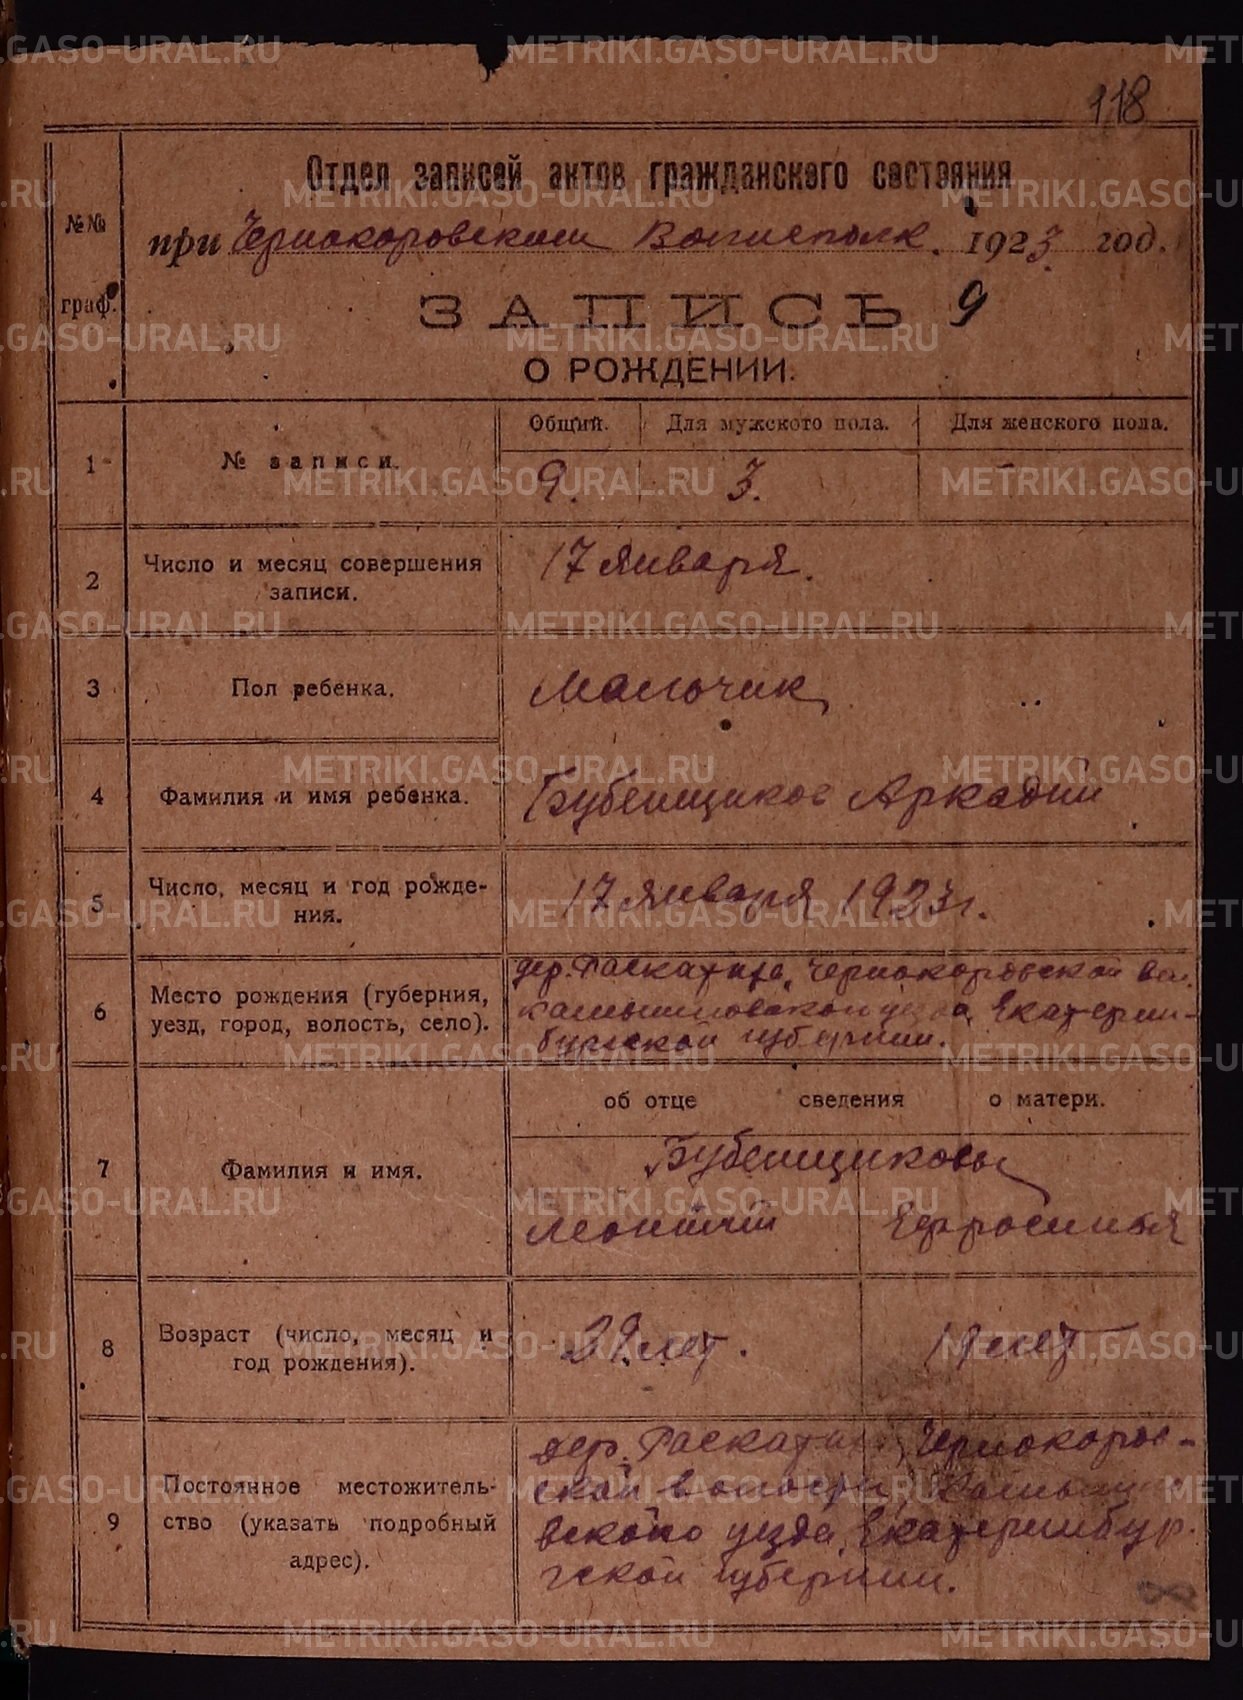 118
Отдел записей актов гражданского состояния
№№ граф.
при Чернокоровском Волисполк. 1923 год.
ЗАПИСЬ 9
О РОЖДЕНИИ.
Общий. Для мужского пола. Для женского пола.
1 № записи. 9. 3. -
2 Число и месяц совершения записи. 17 января.
3 Пол ребенка. Мальчик
4 Фамилия и имя ребенка. Бубенщиков Аркадий
5 Число, месяц и год рожде-
ния. 17 января 1923 г.
6 Место рождения (губерния,
уезд, город, волость, село).
дер. Раскатиха, Чернокоровской вол.
Камышловского уезда, Екатерин-
бургской губернии.
об отце сведения о матери.
7 Фамилия и имя.
Бубенщиковы
Леонтий Ефросиния
8 Возраст (число, месяц и
год рождения).
лет. 19 лет
9 Постоянное местожитель-
ство (указать подробный
адрес).
дер. Чернокоров-
ской волости, Камышло-
вского уезда, Екатеринбур-
гской губернии.
METRIKI.GASO-URAL.RU